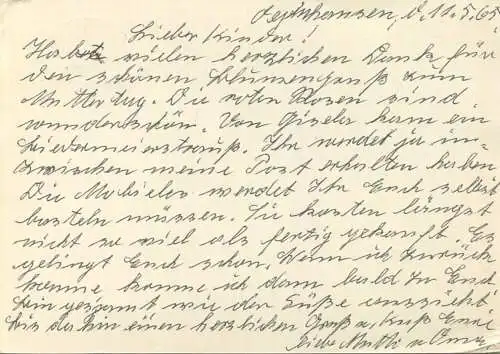 Oeynhausen, d. 11.5.65
Lieber Kinder!
Habt vielen herzlichen Dank für
den schönen Blumengruß zum
Muttertag. Die roten Rosen sind
wunderschön. Von Gisela kam ein
Biedermeierstrauß. Ihr werdet ja in-
zwischen meine Post erhalten haben.
Die Mobieles werdet Ihr Euch selbst
basteln müssen. Sie kosten längst
nicht so viel als fertig gekauft. Es
gelingt Euch schon. Wenn ich zurück
komme komme ich dann bald zu Euch
bin gespannt wie der Süße aussieht
bis dahin einen herzlichen Gruß u. Kuß Eure
liebe Mutti u Oma